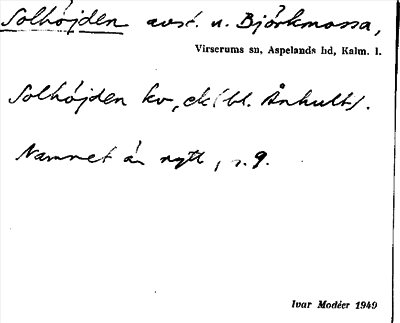 Solhöjden avs. u. Björkmossa,
Virserums sn, Aspelands hd, Kalm. l.
Solhöjden kv, ek (bl. Ånhult).
Namnet är nytt, s. 9.
Ivar Modéer 1949